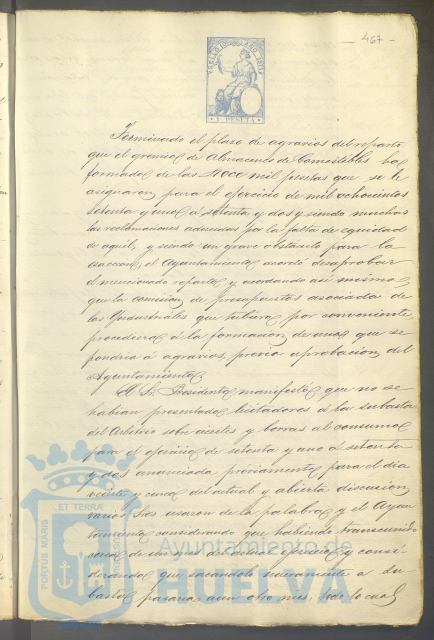 467
SELLO 10º AÑO 1871
1 PESETA
Terminado el plazo de agravios del reparto
que el gremio de Almacenes de Comestibles ha
formado de las doce mil pesetas que se le
asignaron para el ejercicio de mil ochocientos
setenta y uno á setenta y dos y siendo muchas
las reclamaciones aducidas por la falta de equidad
de aquel, y siendo un grave obstáculo para la
el Ayuntamiento acordó desaprobar
el mencionado reparto y acordando asi mismo
que la comision de presupuestos asociada de
los Yndustriales que tubiera por conveniente
procediera á la formacion de uno que se
pondria á agravios, previa aprobacion del
Ayuntamiento
El Sr. Presidente manifestó que no se
habian presentado licitadores á la subasta
del Arbitrio sobre aceites y borras al consumo
para el ejercicio de setenta y uno á setenta
y dos anunciada préviamente para el dia
veinte y cinco del actual y abierta discusion
varios Sres usaron de la palabra y el Ayun
tamiento considerando que habiendo transcurrido
cerca de un mes del actual ejercicio y consi
derando que sacandolo nuevamente á su-
basta pasaria aun otro mes, todo lo cual
PORTUS MARIS ET TERRÆ
Ayuntamiento de
HUELVA